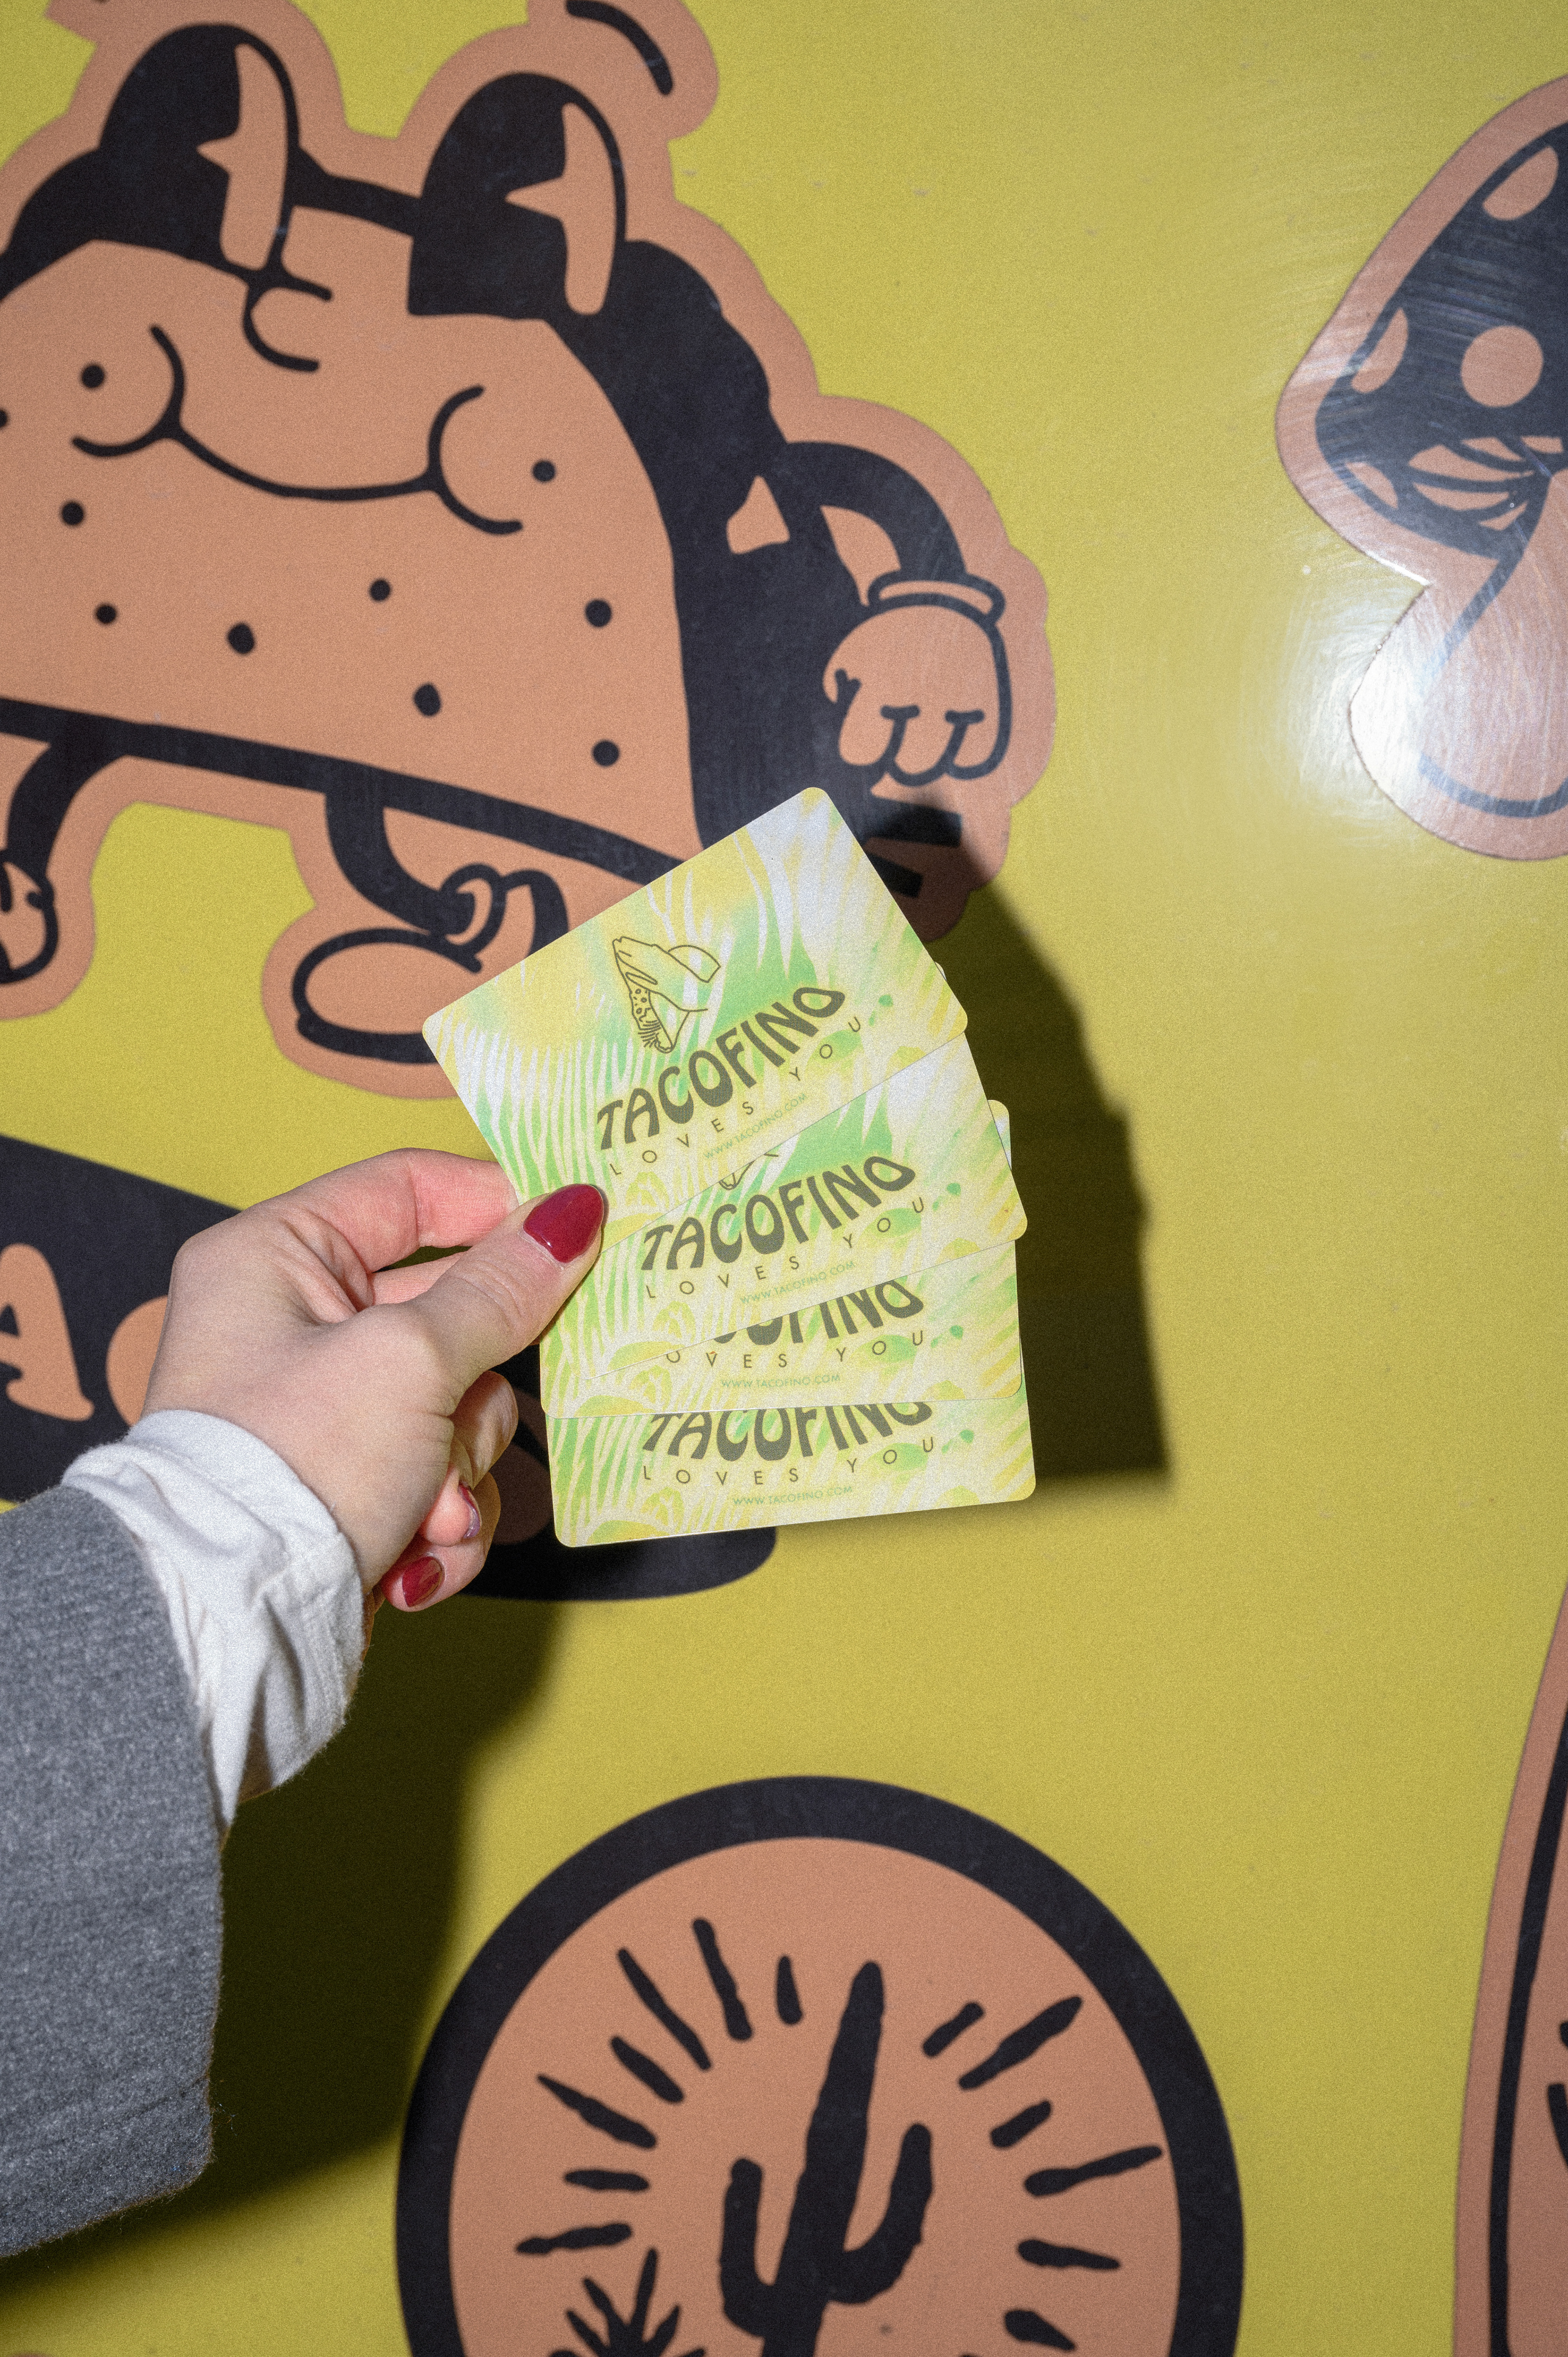 TACOFINO
LOVES YOU
WWW.TACOFINO.COM
TACOFINO
LOVES YOU
WWW.TACOFINO.COM
COFINO
OVES YOU
WWW.TACOFINO.COM
TACOFINO
LOVES YOU
WWW.TACOFINO.COM
A